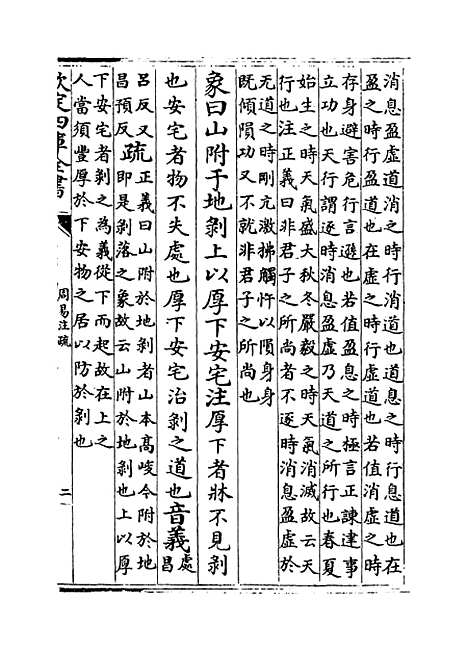 消息盈虛道消之時行消道也道息之時行息道也在
盈之時行盈道也在虛之時行虛道也若值消虛之時
存身避害危行言遜也若值盈息之時極言正諫建事
立功也天行謂逐時消息盈虛乃天道之所行也春夏
始生之時天氣盛大秋冬嚴殺之時天氣消滅故云天
行也注正義曰非君子之所尚者不逐時消息盈虛於
无道之時剛亢激拂觸忤以隕身身
既傾隕功又不就非君子之所尚也
象曰山附于地剝上以厚下安宅注厚下者牀不見剝
也安宅者物不失處也厚下安宅治剝之道也音義處昌
呂反又昌預反疏正義曰山附於地剝者山本高峻今附於地
即是剝落之象故云山附於地剝也上以厚
下安宅者剝之為義從下而起故在上之
人當須豐厚於下安物之居以防於剝也
欽定四庫全書
周易注疏
二一